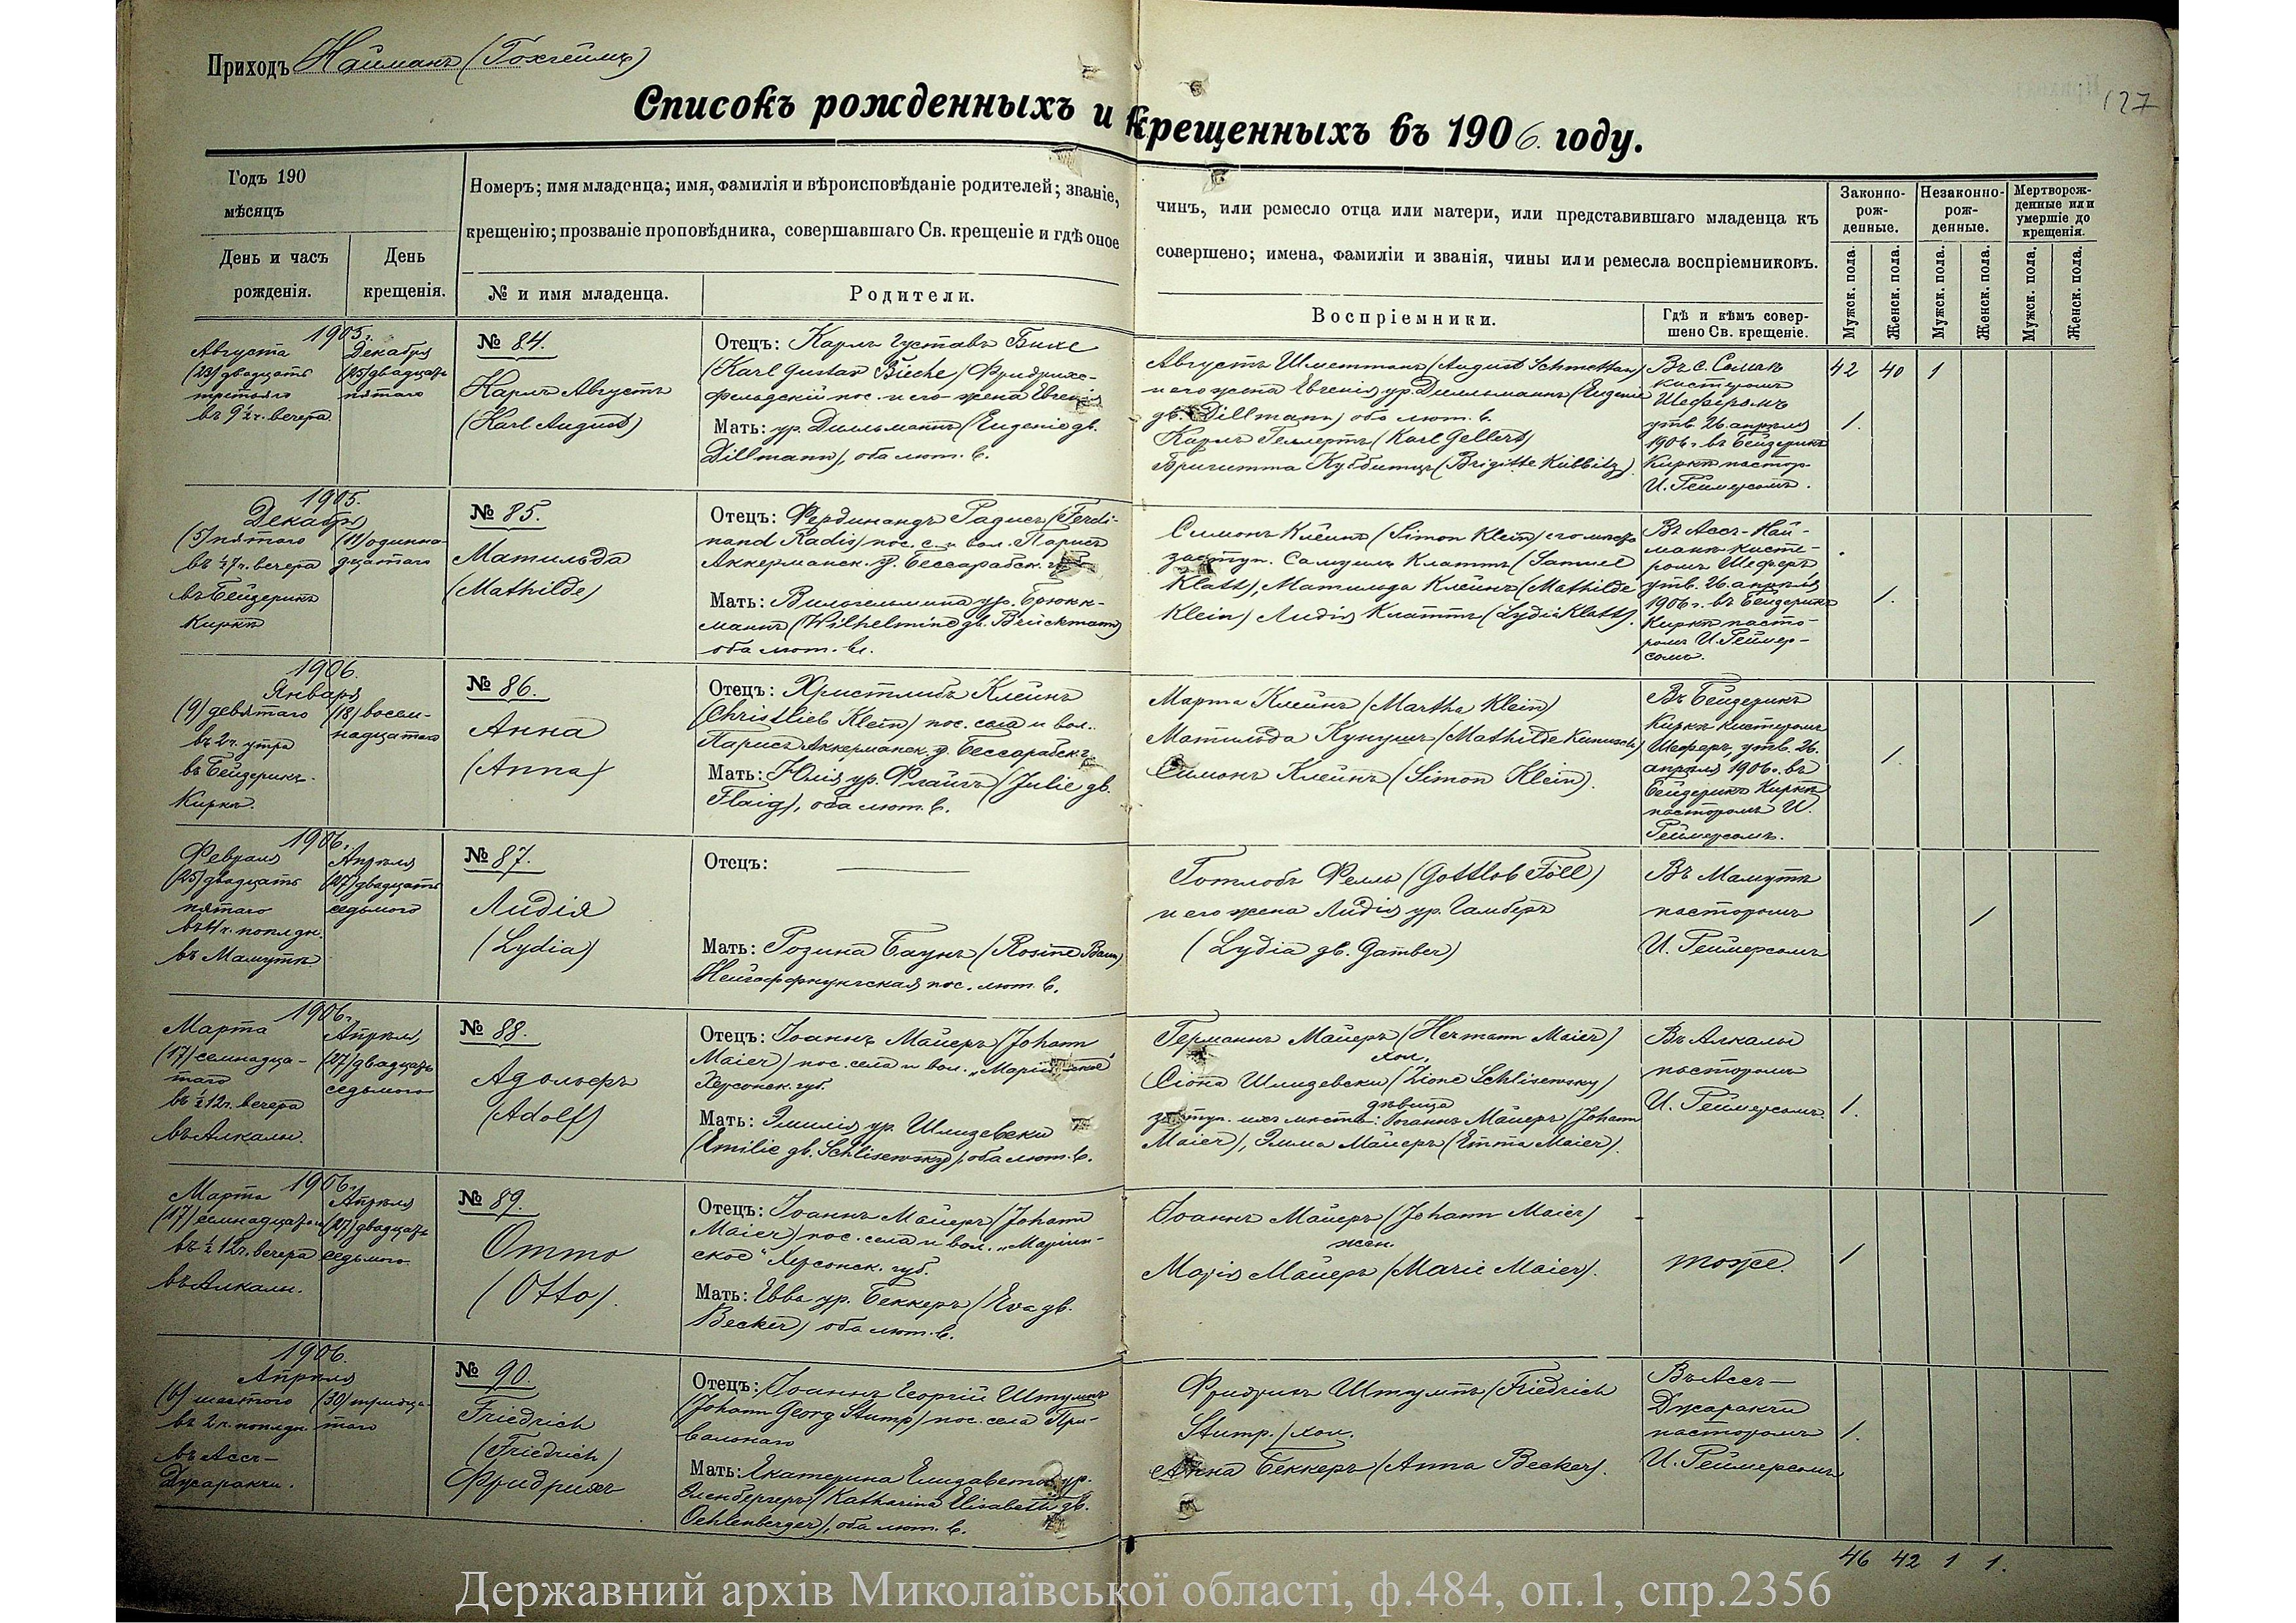 Приходъ Найманъ (Гохгеймъ)
127
Списокъ рожденныхъ и крещенныхъ въ 1906. году.
Годъ 190
мѣсяцъ
День и часъ рожденія.
День крещенія.
Номеръ; имя младенца; имя, фамилія и вѣроисповѣданіе родителей; званіе,
крещенію; прозваніе проповѣдника, совершавшаго Св. крещеніе и гдѣ оное
№ и имя младенца.
Родители.
чинъ, или ремесло отца или матери, или представившаго младенца къ
совершено; имена, фамиліи и званія, чины или ремесла воспріемниковъ.
Воспріемники.
Гдѣ и кѣмъ совер-
шено Св. крещеніе.
Законно-
рож-
денные.
Незаконно-
рож-
денные.
Мертворож-
денные или
умершіе до
крещенія.
Мужск. пола.
Женск. пола.
Мужск. пола.
Женск. пола.
Мужск. пола.
Женск. пола.
1905.
Августа
(23) двадцать
третьяго
въ 9½ ч. вечера
Декабря
(25) двадцать
пятаго
№ 84.
Карлъ Августъ
(Karl August)
Отецъ: Карлъ Густавъ Бихе
(Karl Gustav Bieche) Фридрихс-
фельдскій пос. и его жена Евгенія
Мать: ур. Дилльманнъ (Eugenie gb.
Dillmann), оба лют. в.
Августъ Шметтанъ (August Schmettan)
и его жена Евгенія ур. Дилльманнъ (Eugenie
gb. Dillmann) оба лют. в.
Карлъ Геллертъ (Karl Gellert)
Бригитта Кюббицъ (Brigitte Kübbitz)
Въ с. Сомак
кистеромъ
Шеферомъ
утв. 26. апрѣля
1906 г. въ Бейдерикъ
Киркѣ пастор.
И. Реймерсомъ.
42 40 1
1.
1905.
Декабря
(5) пятаго
въ ½7 ч. вечера
въ Бейдерикъ
Киркѣ
(11) одинна-
дцатаго
№ 85.
Матильда
(Mathilde)
Отецъ: Фердинандъ Радисъ (Ferdi-
nand Radis) пос. с. и вол. Парисъ
Аккерманск. у. Бессарабск. г.
Мать: Вильгельмина ур. Брюкк-
манъ (Wilhelmine gb. Brückmann)
оба лют. в.
Симонъ Клейнъ (Simon Klein) его мѣсто
заступ. Самуилъ Клаттъ (Samuel
Klatt), Матильда Клейнъ (Mathilde
Klein) Лидія Клаттъ (Lydia Klatt).
Въ Ассъ-Най-
манъ кисте-
ромъ Шеферъ
утв. 26. апрѣля
1906 г. въ Бейдерикъ
Киркѣ пасто-
ромъ И. Реймер-
сомъ.
1.
1906.
Января
(9) девятаго
въ 2 ч. утра
въ Бейдерикъ.
Киркѣ.
(18) восем-
надцатаго
№ 86.
Анна
(Anna)
Отецъ: Христлибъ Клейнъ
(Christlieb Klein) пос. села и вол.
Парисъ Аккерманск. у. Бессарабск. г.
Мать: Юлія ур. Флайгъ (Julie gb.
Flaig), оба лют. в.
Марта Клейнъ (Martha Klein)
Матильда Кунушъ (Mathilde Kunusch)
Симонъ Клейнъ (Simon Klein).
Въ Бейдерикъ
Киркѣ кистеромъ
Шеферъ, утв. 26.
апрѣля 1906 г. въ
Бейдерикъ Киркѣ
пасторомъ И.
Реймерсомъ.
1.
1906.
Февраля
(25) двадцать
пятаго
въ 4 ч. поплдн.
въ Мамутѣ
Апрѣля
(27) двадцать
седьмого
№ 87.
Лидія
(Lydia)
Отецъ:
Мать: Розина Баунъ (Rosine Baun)
Нейгоффнунгская пос. лют. в.
Готлобъ Фелль (Gottlob Föll)
и его жена Лидія ур. Гамберъ
(Lydia gb. Gamber)
Въ Мамутѣ
пасторомъ
И. Реймерсомъ
1
1906.
Марта
(17) семнадца-
таго
въ ½12 ч. вечера
въ Алкалы.
Апрѣля
(27) двадцать
седьмого
№ 88.
Адольфъ
(Adolf)
Отецъ: Іоаннъ Майеръ (Johann
Maier) пос. села и вол. „Маріинское“
Херсонск. губ.
Мать: Эмилія ур. Шлизевски
(Emilie gb. Schlisewsky), оба лют. в.
Германнъ Майеръ (Hermann Maier)
хол.
Сіона Шлизевски (Zione Schlisewsky)
дѣвица
заступ. ихъ мѣста: Іоганнъ Майеръ (Johann
Maier), Эмма Майеръ (Emma Maier).
Въ Алкалы
пасторомъ
И. Реймерсомъ.
1.
1906.
Марта
(17) семнадцатаго
въ ½ 12 ч. вечера
въ Алкалы.
Апрѣля
(27) двадцать
седьмого.
№ 89.
Отто
(Otto).
Отецъ: Іоаннъ Майеръ (Johann
Maier) пос. села и вол. „Маріин-
ское“ Херсонск. губ.
Мать: Евва ур. Беккеръ (Eva gb.
Becker) оба лют. в.
Іоаннъ Майеръ (Johann Maier)
жен.
Марія Майеръ (Marie Maier).
тоже.
1
1906.
Апрѣля
(6) шестого
въ 2 ч. поплдн.
въ Ассъ-
Джаракчи.
(30) тридца-
таго
№ 90.
Friedrich
(Friedrich)
Фридрихъ
Отецъ: Іоаннъ Георгій Штумпъ
(Johann Georg Stump) пос. села При-
вальнаго
Мать: Екатерина Елизавета ур.
Эленбергеръ (Katharina Elisabeth gb.
Oehlenberger), оба лют. в.
Фридрихъ Штумпъ (Friedrich
Stump.) хол.
Анна Беккеръ (Anna Becker).
Въ Ассъ-
Джаракчи
пасторомъ
И. Реймерсомъ
1.
46 42 1 1.
Державний архів Миколаївської області, ф.484, оп.1, спр.2356